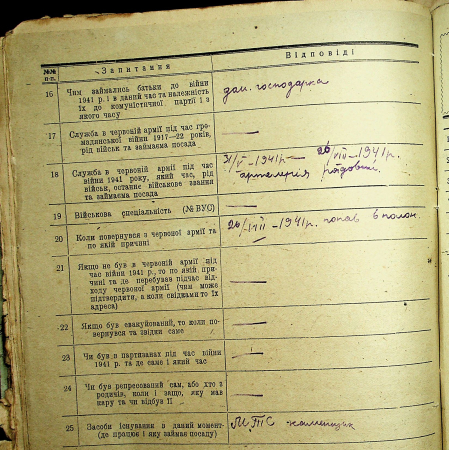 №№ п.п.
Запитання
Відповіді
16
Чим займались батьки до війни
1941 р. і в даний час та належність
їх до комуністичної партії і з
якого часу
дом. господарка
17
Служба в червоній армії під час гро-
мадянської війни 1917—22 років,
рід військ та займаема посада
—
18
Служба в червоній армії під час
війни 1941 року, який час, рід
військ, останнє військове звання
та займаема посада
—1941р — 26/VIII—1941р.
артилерія рядовий
19
Військова спеціяльність (№ ВУС)
—
20
Коли повернувся з червоної армії та
по якій причині
26/VIII —1941р. попав в полон.
21
Якщо не був в червоній армії під
час війни 1941 р., то по якій при-
чині та де перебував підчас від-
ходу червоної армії (чим може
підтвердити, а коли свідками то їх
адреса)
—
22
Якщо був евакуйований, то коли по-
вернувся та звідки саме
—
23
Чи був в партизанах під час війни
1941 р. та де саме і який час
—
24
Чи був репресований сам, або хто з
родичів, коли і защо, яку мав
кару та чи відбув її
—
25
Засоби існування в даний момент-
(де працює і яку займає посаду)
МТС каменщик